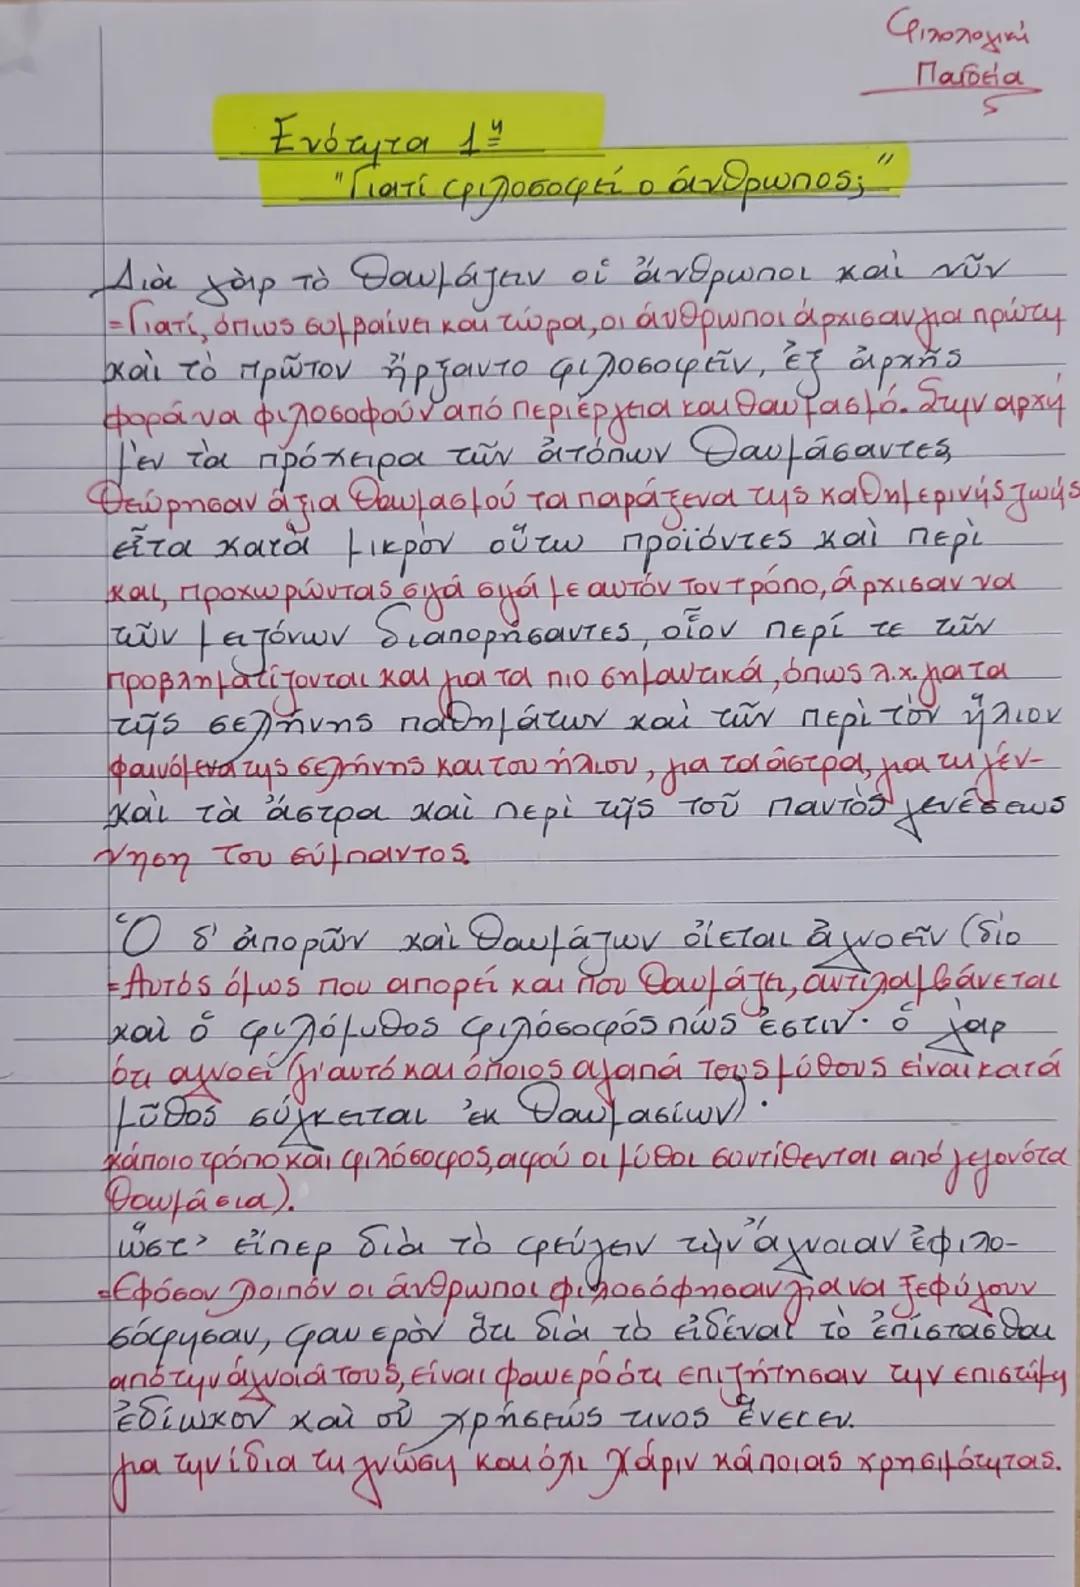 Φιλολογική
Παιδεία
Ενότητα 1η
"Γιατί φιλοσοφεί ο άνθρωπος;"
Διὰ γὰρ τὸ θαυμάζειν οἱ ἄνθρωποι καὶ νῦν
=Γιατί, όπως συμβαίνει και τώρα, οι άνθρωποι άρχισαν για πρώτη
καὶ τὸ πρῶτον ἤρξαντο φιλοσοφεῖν, ἐξ ἀρχῆς
φορά να φιλοσοφούν από περιέργεια και θαυμασμό. Στην αρχή
μὲν τὰ πρόχειρα τῶν ἀτόπων θαυμάσαντες,
θεώρησαν άξια θαυμασμού τα παράξενα της καθημερινής ζωής
εἶτα κατὰ μικρὸν οὕτω προϊόντες καὶ περὶ
και, προχωρώντας σιγά σιγά με αυτόν τον τρόπο, άρχισαν να
τῶν μειζόνων διαπορήσαντες, οἷον περί τε τῶν
προβληματίζονται και για τα πιο σημαντικά, όπως λ.χ. για τα
τῆς σελήνης παθημάτων καὶ τῶν περὶ τὸν ἥλιον
φαινόμενα της σελήνης και του ήλιου, για τα άστρα, για τη γέν-
καὶ τὰ ἄστρα καὶ περὶ τῆς τοῦ παντὸς γενέσεως
νηση του σύμπαντος.
Ὁ δ' ἀπορῶν καὶ θαυμάζων οἴεται ἀγνοεῖν (διο
=Αυτός όμως που απορεί και που θαυμάζει, αντιλαμβάνεται
καὶ ὁ φιλόμυθος φιλόσοφός πώς ἐστιν· ὁ γὰρ
ότι αγνοεί (γι'αυτό και όποιος αγαπά τους μύθους είναι κατά
μῦθος σύγκειται ἐκ θαυμασίων)·
κάποιο τρόπο και φιλόσοφος, αφού οι μύθοι συντίθενται από γεγονότα
θαυμάσια).
ὥστ' εἴπερ διὰ τὸ φεύγειν τὴν ἄγνοιαν ἐφιλο-
=Εφόσον λοιπόν οι άνθρωποι φιλοσόφησαν για να ξεφύγουν
σόφησαν, φανερὸν ὅτι διὰ τὸ εἰδέναι τὸ ἐπίστασθαι
από την άγνοιά τους, είναι φανερό ότι επιζήτησαν την επιστήμη
ἐδίωκον καὶ οὐ χρήσεώς τινος ἕνεκεν.
για την ίδια τη γνώση και όχι χάριν κάποιας χρησιμότητας.